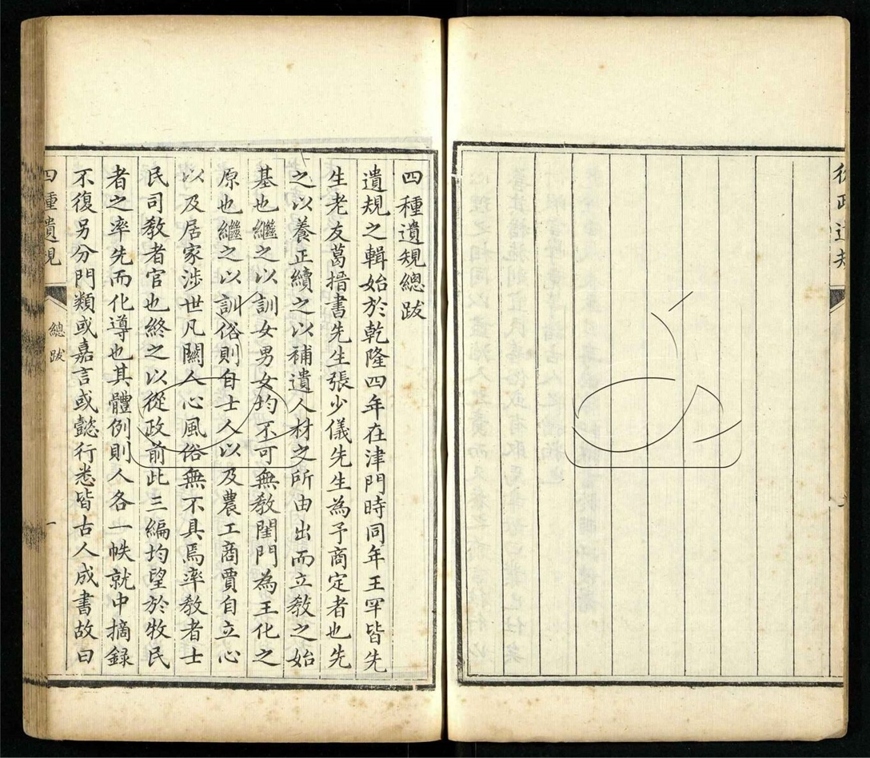 從政遺規
四種遺規總跋
遺規之輯始於乾隆四年在津門時同年王罕皆先
生老友葛搢書先生張少儀先生為予商定者也先
之以養正續之以補遺人材之所由出而立教之始
基也繼之以訓女男女均不可無教閨門為王化之
原也繼之以訓俗則自士人以及農工商賈自立心
以及居家涉世凡關人心風俗無不具焉率教者士
民司教者官也終之以從政前此三編均望於牧民
者之率先而化導也其體例則人各一帙就中摘錄
不復另分門類或嘉言或懿行悉皆古人成書故曰
四種遺規
總跋
一